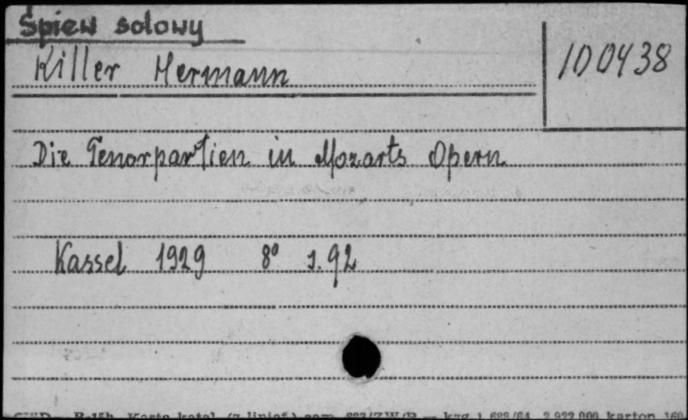 Śpiew solowy
Killer Hermann
100438
Die Tenorpartien in Mozarts Opern
Kassel 1929 8° s. 92